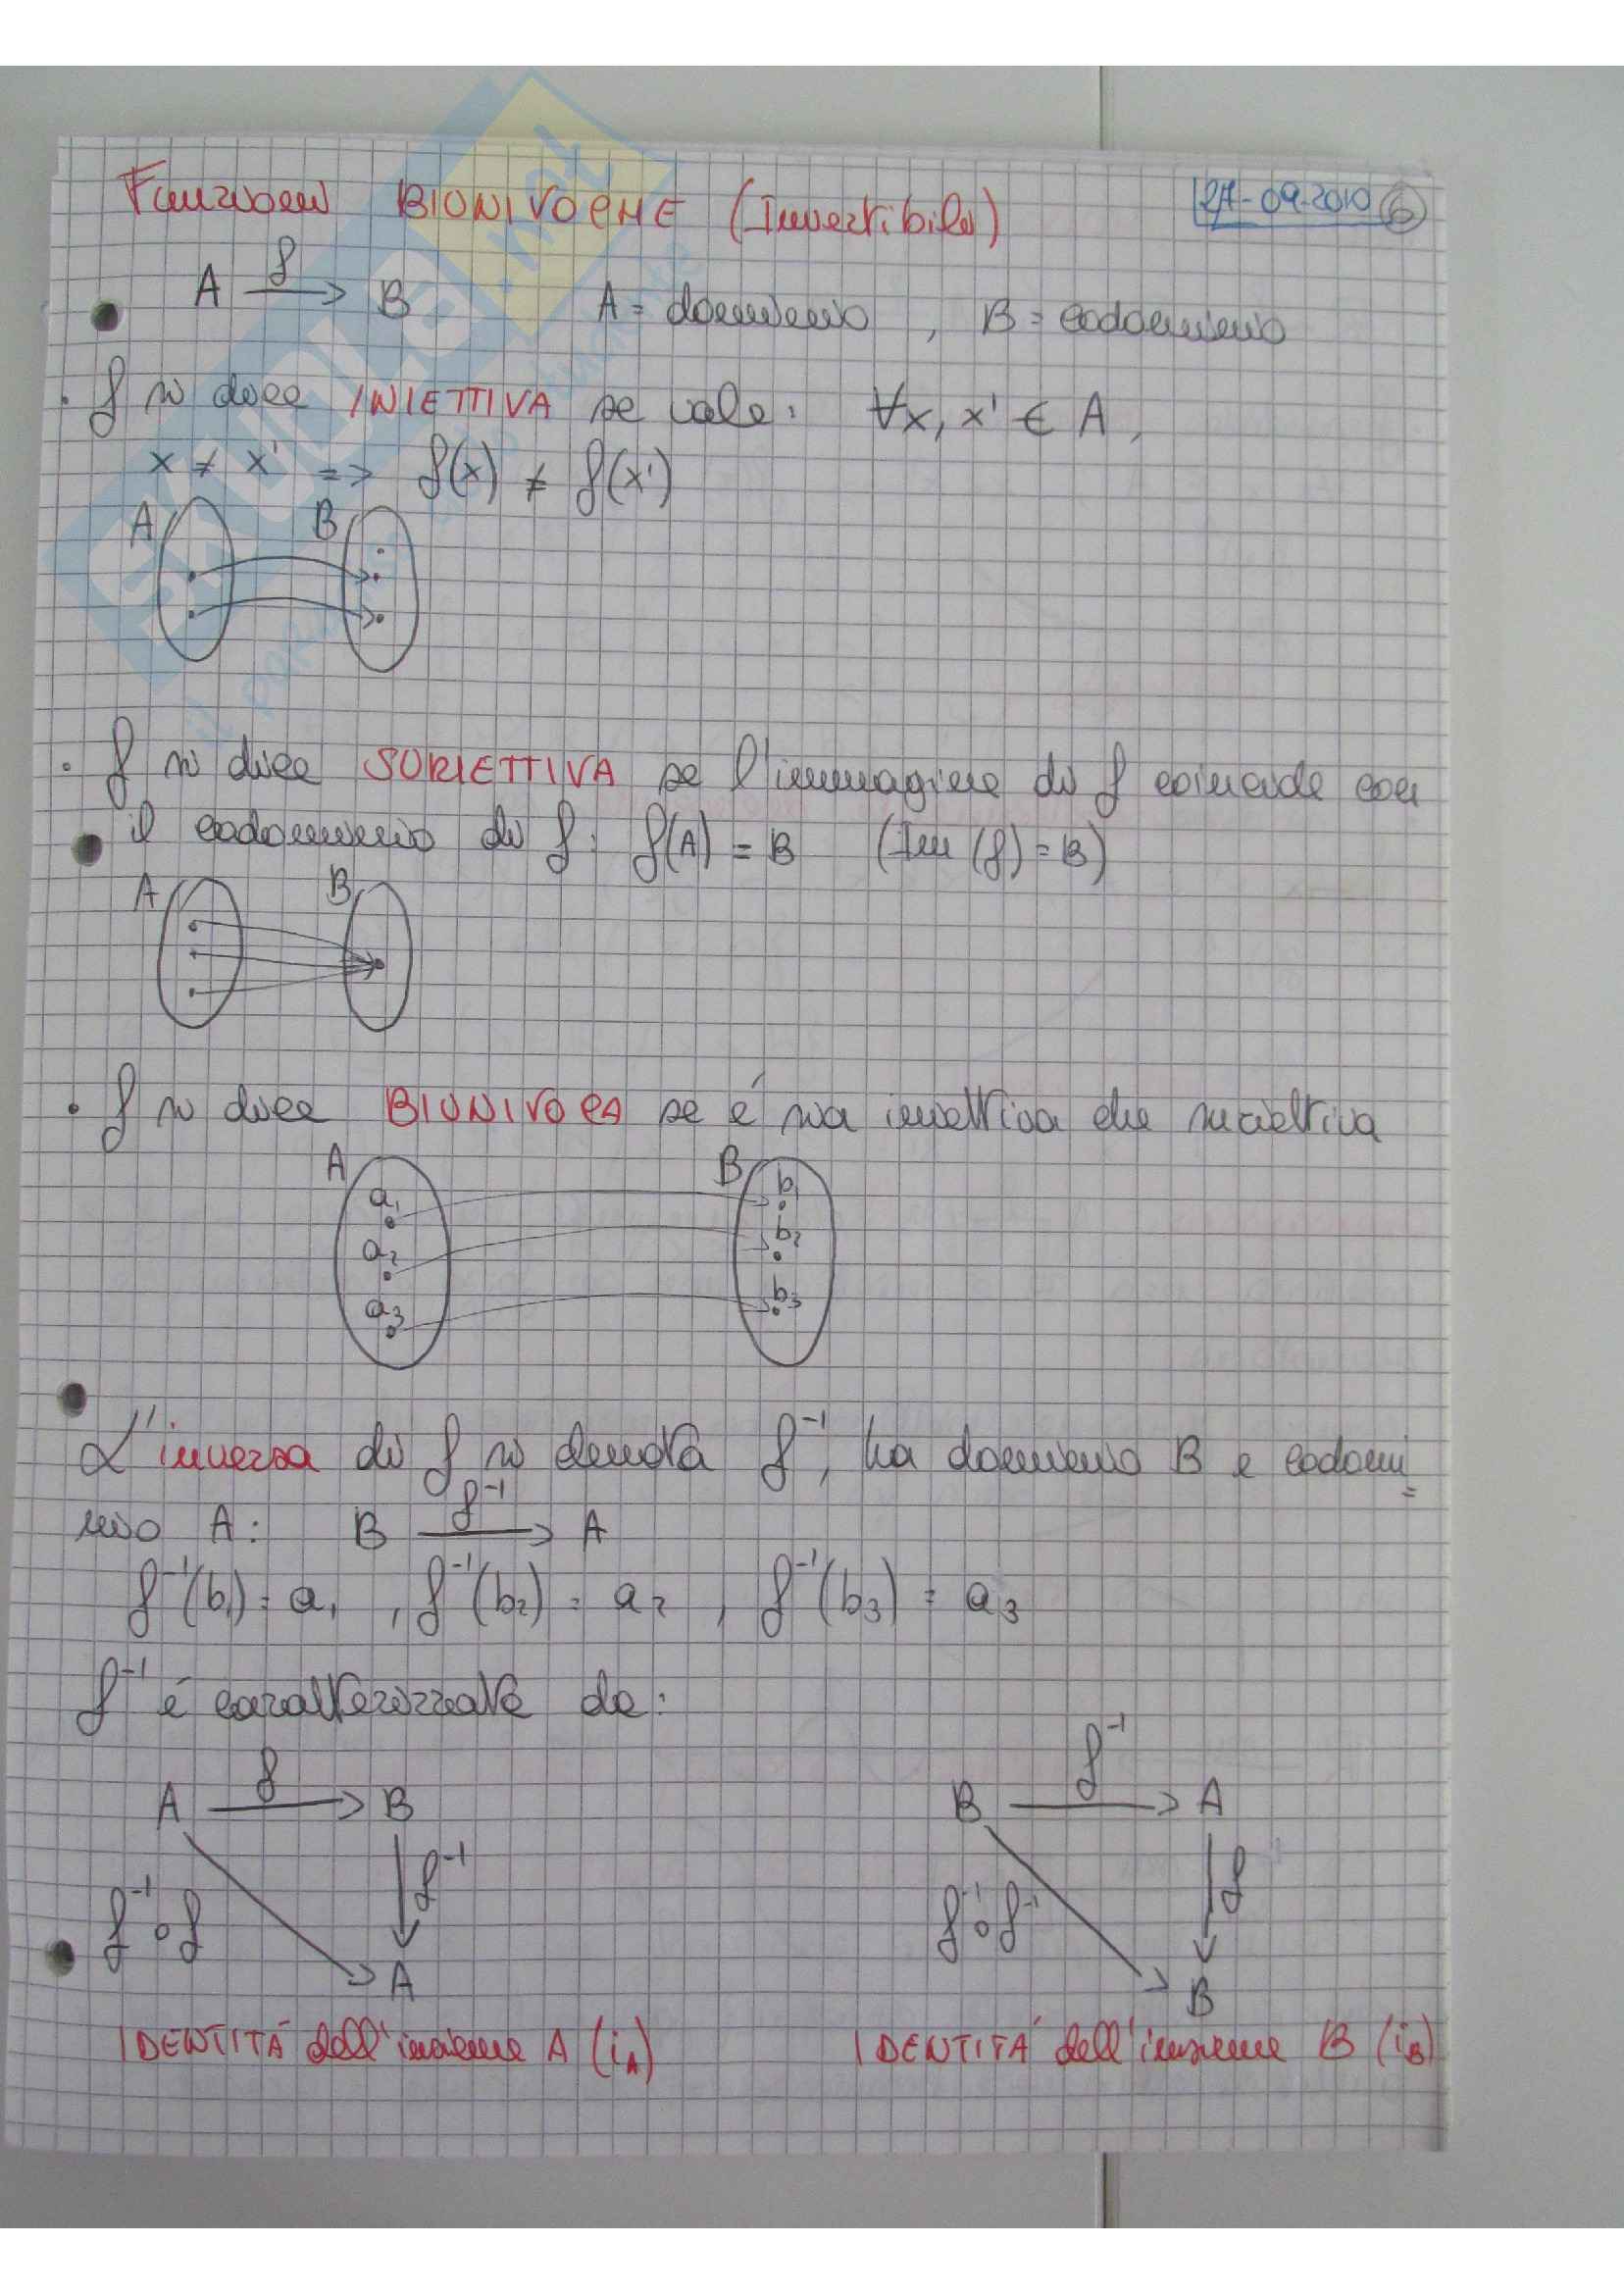 Funzioni BIUNIVOCHE (Invertibili)
27-09-2010 6
A f B A = dominio , B = codominio
. f si dice INIETTIVA se vale: ∀x, x' ∈ A ,
x ≠ x' => f(x) ≠ f(x')
A B
. f si dice SURIETTIVA se l'immagine di f coincide con
il codominio di f: f(A) = B (Im (f) = B)
A B
• f si dice BIUNIVOCA se é sia iniettiva che suriettiva
A B
a₁ b₁
a₂ b₂
a₃ b₃
L'inversa di f si denota f⁻¹, ha dominio B e codomi=
nio A: B f⁻¹ A
f⁻¹(b₁) = a₁ , f⁻¹(b₂) = a₂ , f⁻¹(b₃) = a₃
f⁻¹ é caratterizzata da:
A f B
f⁻¹
f⁻¹ ∘ f
A
IDENTITÁ dell'insieme A (i_A)
B f⁻¹ A
f
f ∘ f⁻¹
B
IDENTITÁ dell'insieme B (i_B)
SKUOLA.net